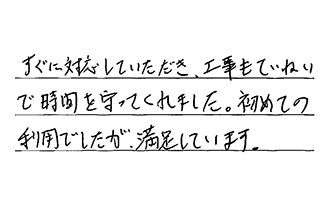 すぐに対応していただき、工事もていねい
で時間を守ってくれました。初めての
利用でしたが、満足しています。